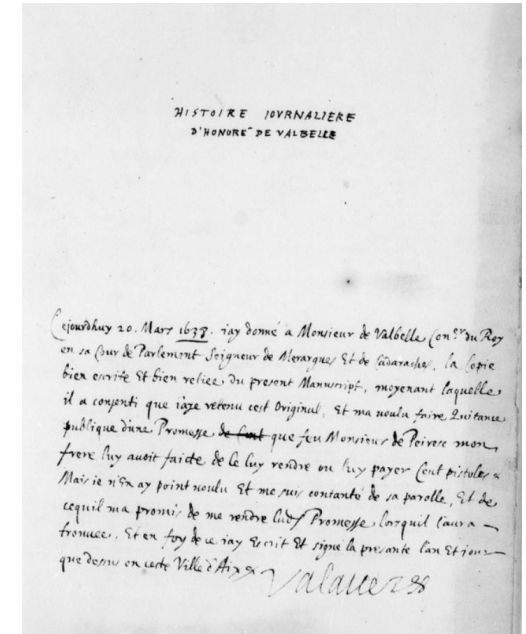 HISTOIRE IOVRNALIERE
D'HONORÉ DE VALBELLE
Cejourdhuy 20. Mars 1638. iay donné à Monsieur de Valbelle Con.er du Roy
en sa Cour de Parlement Seigneur de Merargues Et de Cadarache, la Copie
bien escrite Et bien reliee du present Manuscript, moyenant laquelle
il a consenti que iaye retenu cest Original, Et ma voulu faire Quitance
publique d'une Promesse de Cent que feu Monsieur de Peiresc mon
frere luy avoit faicte de le luy rendre ou luy payer Cent pistoles
Mais ie n'En ay point voulu Et me suis contanté de sa parolle, Et de
cequil ma promis de me rendre lad. Promesse lorsquil l'aura
trouuee. Et en foy de ce iay Escrit Et signé la presante l'an Et iour
que dessus en ceste Ville d'Aix
Valauez